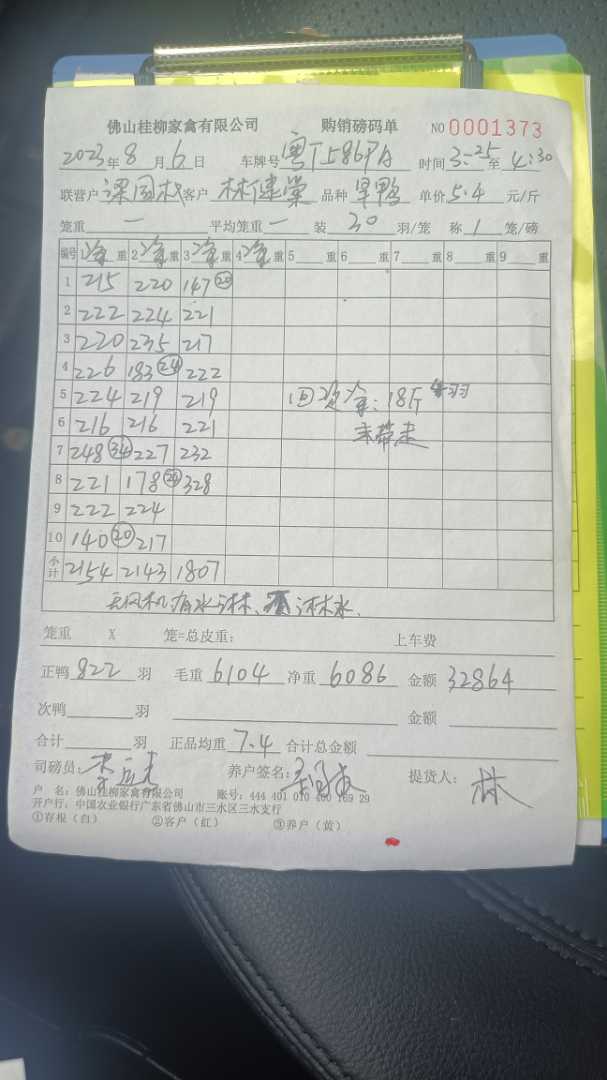 佛山桂柳家禽有限公司 购销磅码单 NO 0001373
2023年8月6日 车牌号 粤T586PA 时间 3:25至4:30
联营户 梁国权 客户 林健棠 品种 旱鸭 单价 5.4 元/斤
笼重 一 平均笼重 一 装 30 羽/笼 称 1 笼/磅
编号 1净重 2净重 3净重 4净重 5 重 6 重 7 重 8 重 9 重
1 215 220 147 ⑳
2 222 224 221
3 220 235 217
4 226 183 ㉔ 222
5 224 219 219 回资金:18斤
6 216 216 221 未带走
7 248 ㉞ 227 232
8 221 178 ㉔ 328
9 222 224
10 140 ⑳ 217
小计 2154 2143 1807
无风机有水淋、 淋水.
笼重 X 笼=总皮重: 上车费
正鸭 822 羽 毛重 6104 净重 6086 金额 32864
次鸭 羽 金额
合计 羽 正品均重 7.4 合计总金额
司磅员: 养户签名: 提货人: 林
户 名:佛山桂柳家禽有限公司 账号:444 401 010 400 169 29
开户行:中国农业银行广东省佛山市三水区三水支行
①存根(白) ②客户(红) ③养户(黄)